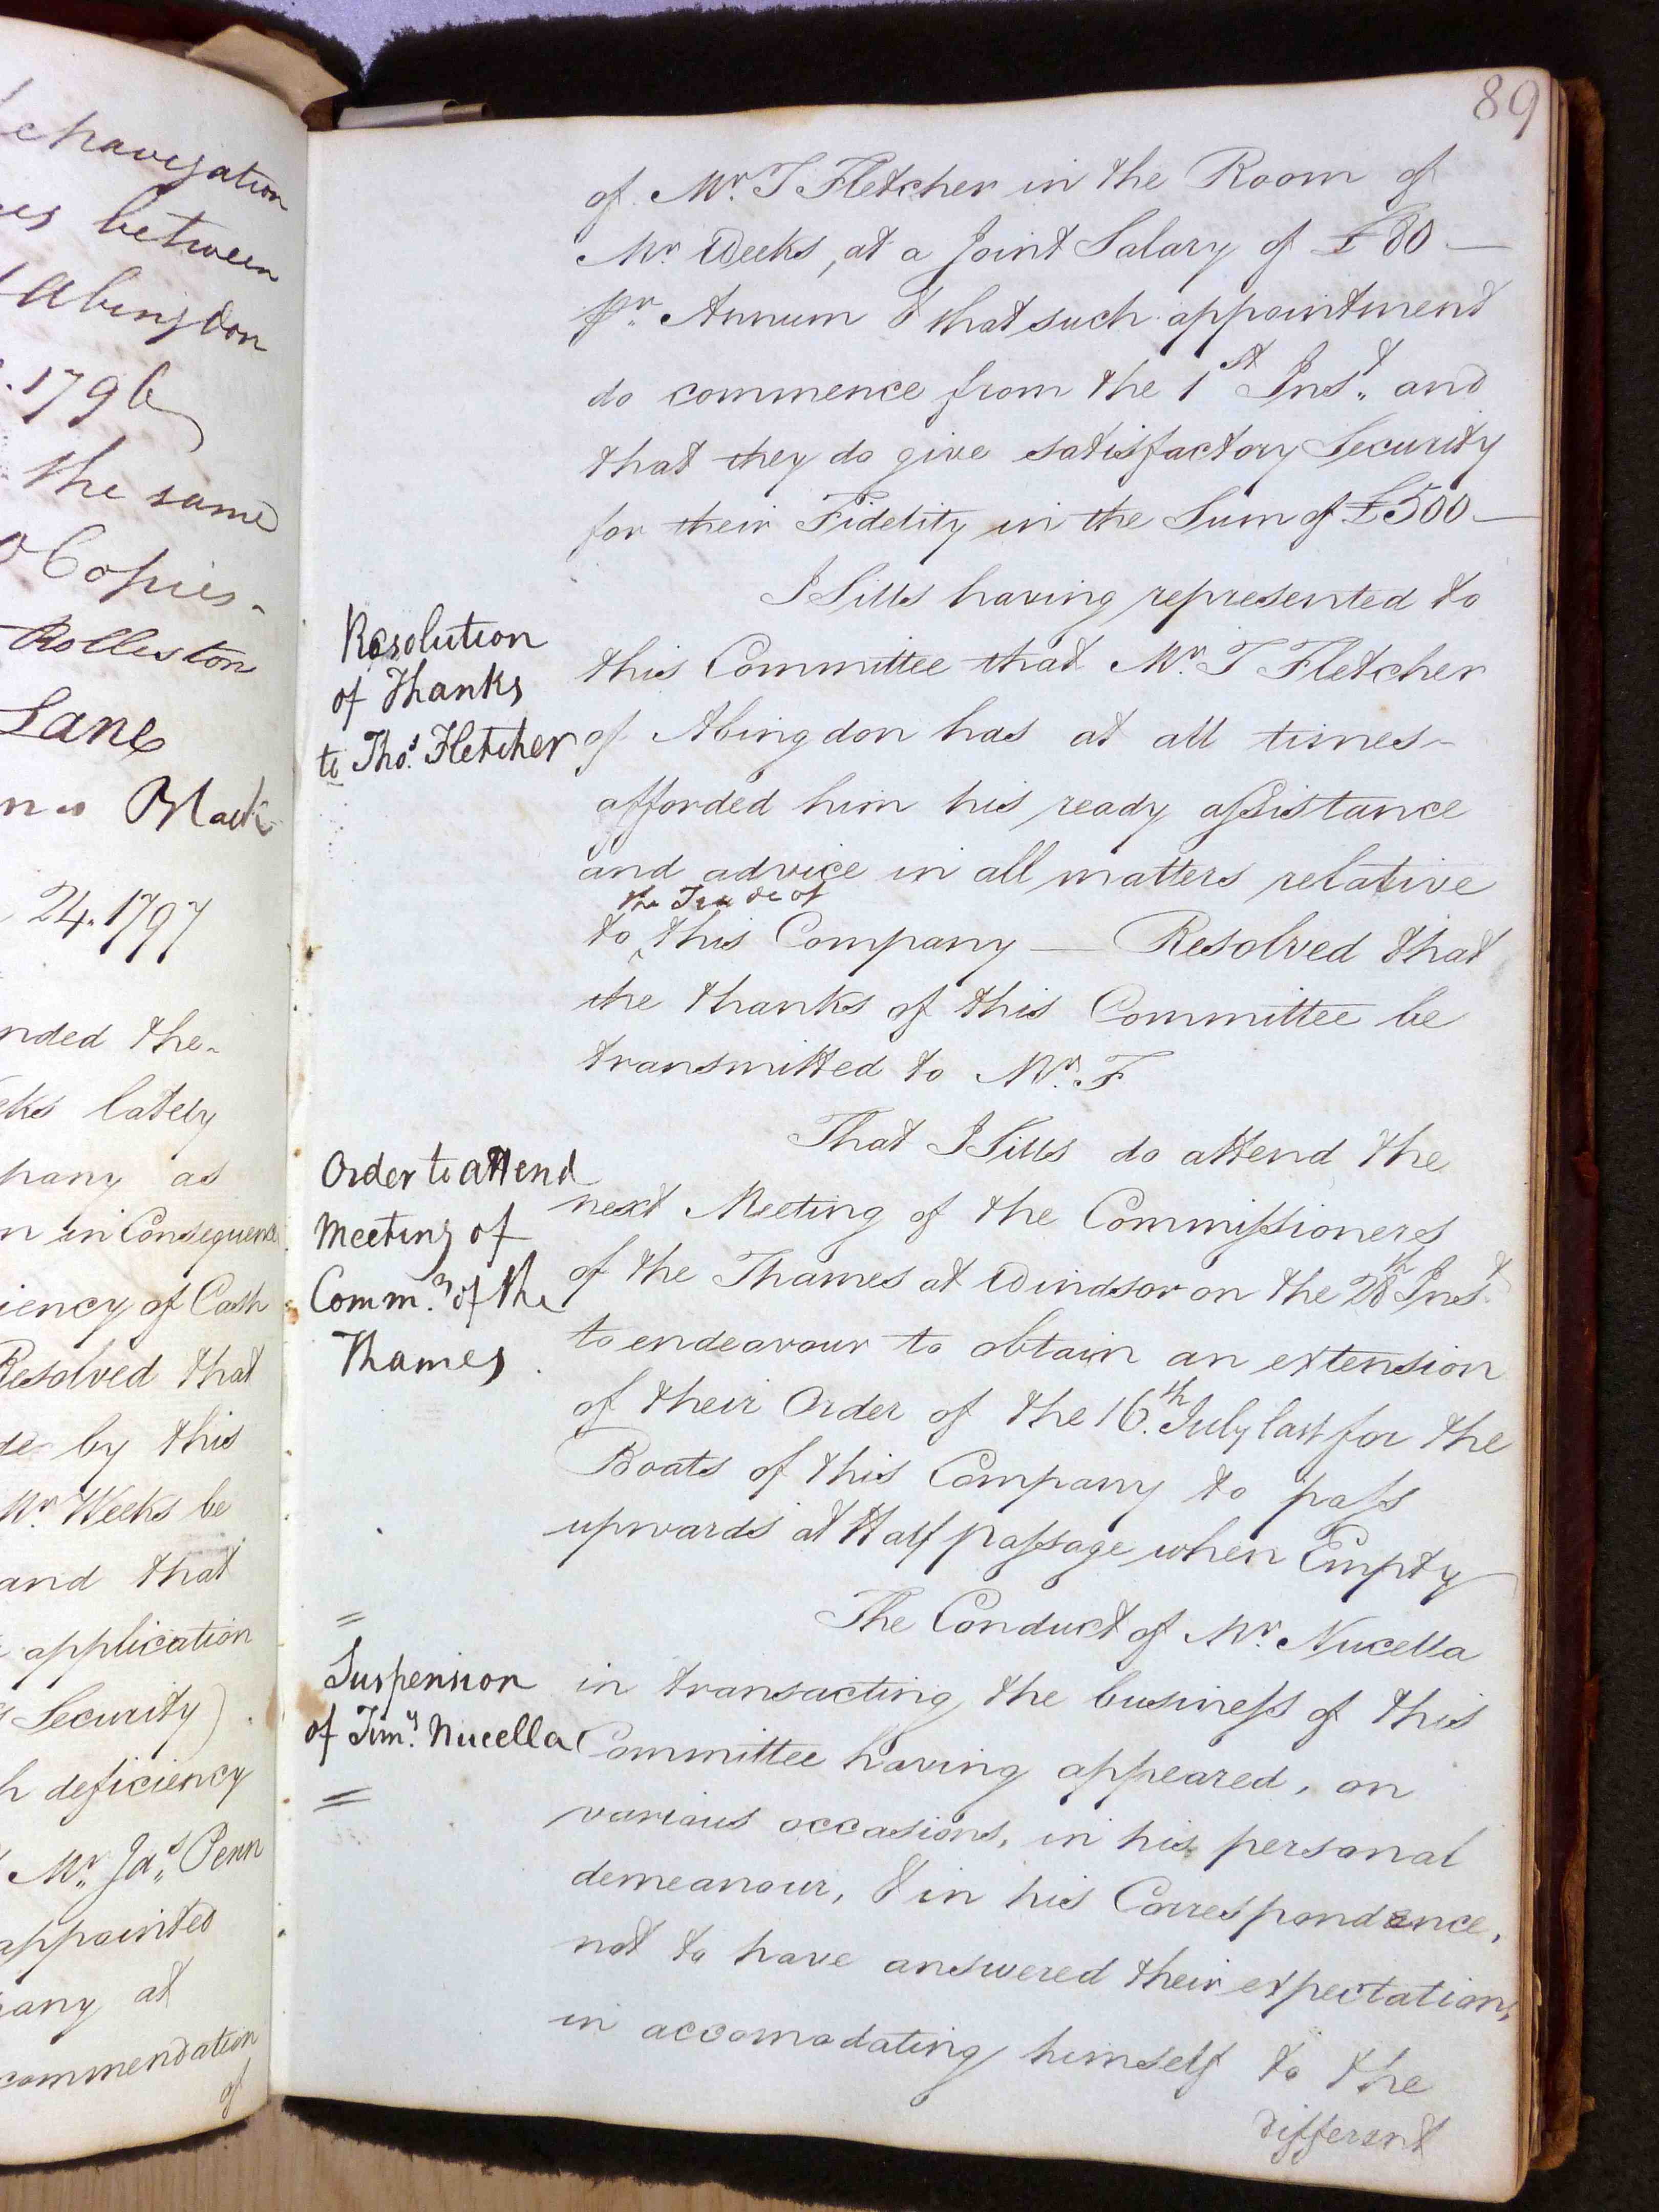 e navigation
es between
Abingdon
. 1796
the same
Copies -
Rolleston
Lane
Mack
24. 1797
nded the -
eks lately
pany as
n in Consequence
iency of Cash
Resolved that
de by this
Mr. Weeks be
and that
application
Security)
h deficiency
Mr. Jas. Penn
appointed
pany at
commendation
of
89
of Mr. T Fletcher in the Room of
Mr. Weeks, at a Joint Salary of £80 —
Pr. Annum & that such appointment
do commence from the 1st Inst. and
that they do give satisfactory Security
for their Fidelity in the Sum of £500 —
Resolution
of Thanks
to Thos. Fletcher
J Sills having represented to
this Committee that Mr. T Fletcher
of Abingdon has at all times -
afforded him his ready assistance
and advice in all matters relative
the Trade of
to ‸ this Company — Resolved that
the thanks of this Committee be
transmitted to Mr. F
Order to attend
Meeting of
Comm.rs of the
Thames.
That J Sills do attend the
next Meeting of the Commissioners
of the Thames at Windsor on the 28th Inst.
to endeavour to obtain an extension
of their Order of the 16.th July last for the
Boats of this Company to pass
upwards at Half passage when Empty
=
Suspension
of Timy. Nucella
=
The Conduct of Mr. Nucella
in transacting the business of this
Committee having appeared, on
various occasions, in his personal
demeanour, & in his Correspondence,
not to have answered their expectations,
in accomodating himself to the
different